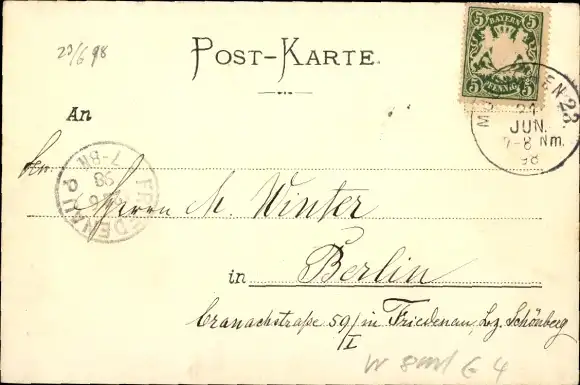 23/6 98
POST-KARTE.
BAYERN
5 5
5 PFENNIG 5
MÜNCHEN 23.
21
JUN.
7-8 Nm.
98
An
FRIEDENAU
7-8N.
98
Herrn M. Winter
in Berlin
Cranachstraße 59/I in Friedenau, Bz. Schönberg